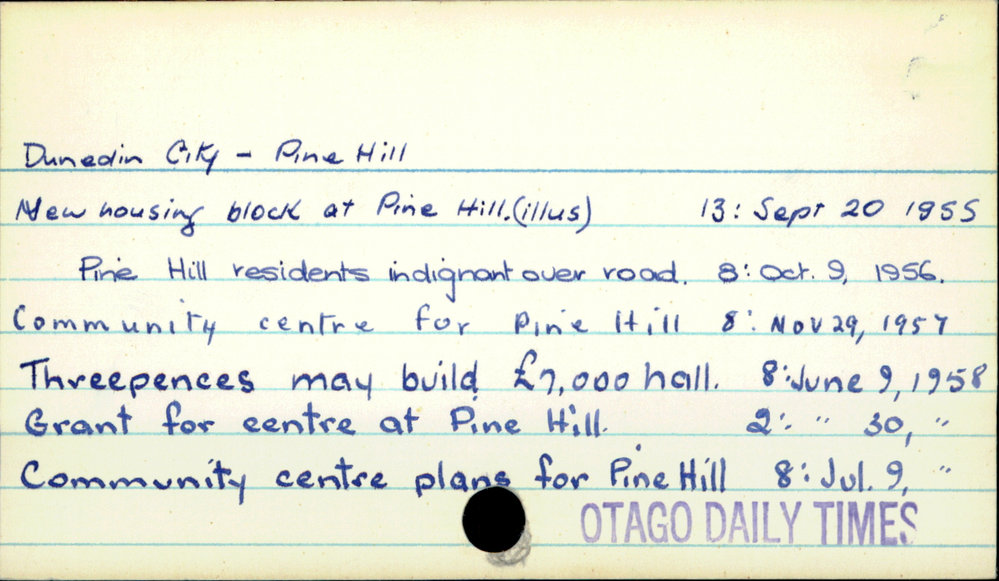 Dunedin City - Pine Hill
New housing block at Pine Hill.(illus) 13: Sept 20 1955
Pine Hill residents indignant over road. 8: Oct. 9, 1956.
Community centre for Pine Hill 8: Nov 29, 1957
Threepences may build £7,000 hall. 8: June 9, 1958
Grant for centre at Pine Hill. 2: " 30, "
Community centre plans for Pine Hill 8: Jul. 9, "
OTAGO DAILY TIMES